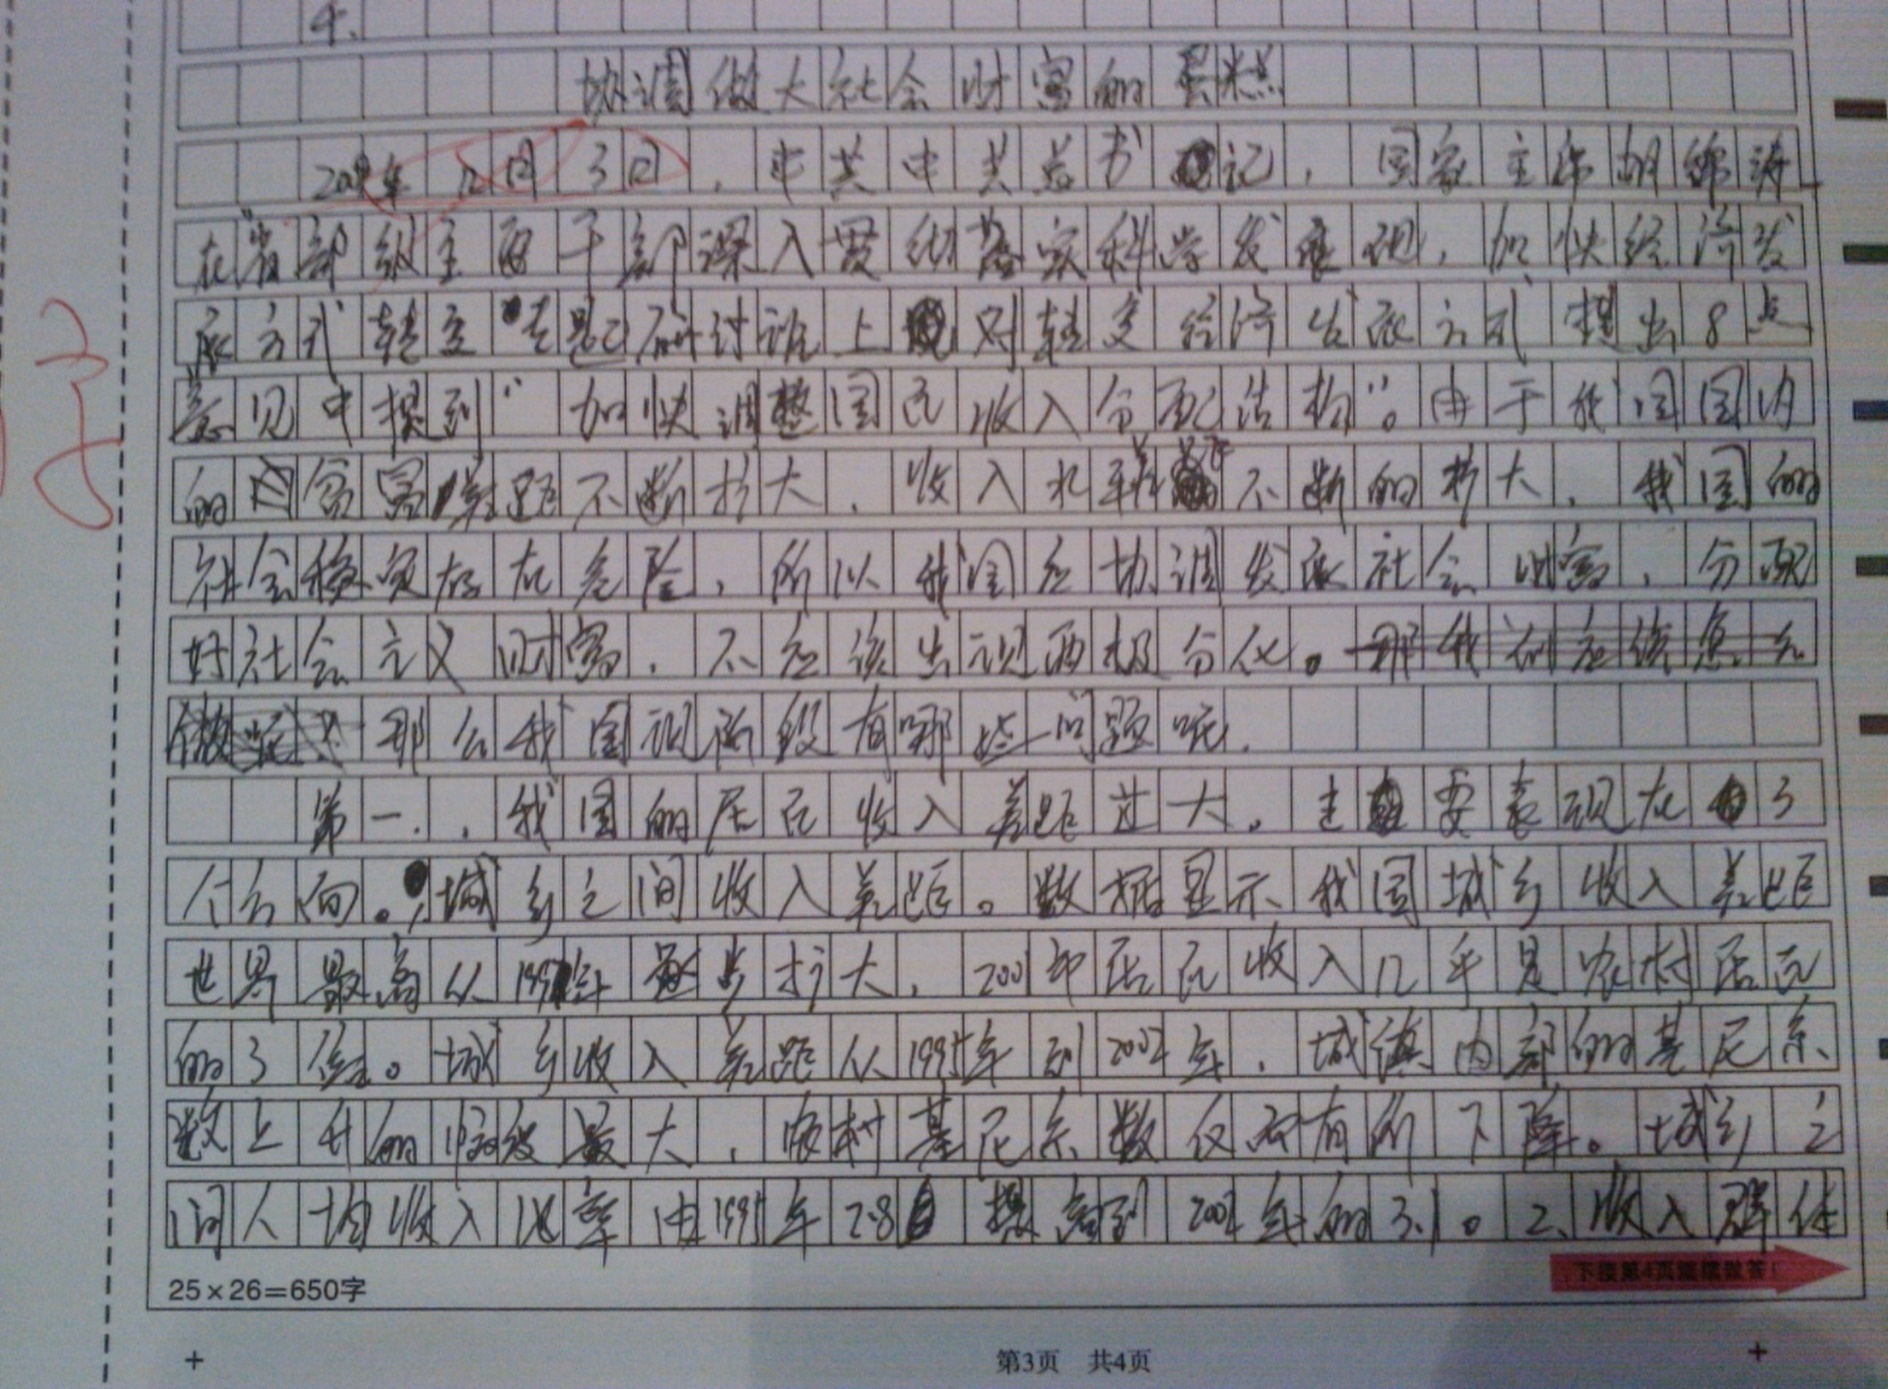 4.
协调做大社会财富的蛋糕
年12月3日，中共中共总书记，国家主席胡锦涛
在"省部级主要干部深入贯彻落实科学发展观，加快经济发
展方式转变"专题研讨班上对转变经济发展方式提出8点
意见中提到"加快调整国民收入分配结构"。由于我国国内
的贫富差距不断扩大，收入水平差距不断的扩大，我国的
社会稳定存在危险，所以我国应协调发展社会财富，分配
好社会主义财富，不应该出现两极分化。那我们应该怎么
做呢？那么我国现阶段有哪些问题呢.
第一.，我国的居民收入差距过大。主要表现在3
个方面。1,城乡之间收入差距。数据显示我国城乡收入差距
世界最高从1997年逐步扩大，2001年居民收入几乎是农村居民
的3倍。城乡收入差距从1995年到2002年，城镇内部的基尼系
数上升的幅度最大，农村基尼系数仅略有所下降。城乡之
间人均收入比率由1995年2.8提高到2002年的3.1。2、收入群体
25×26=650字
下接第4页继续做答!
第3页 共4页